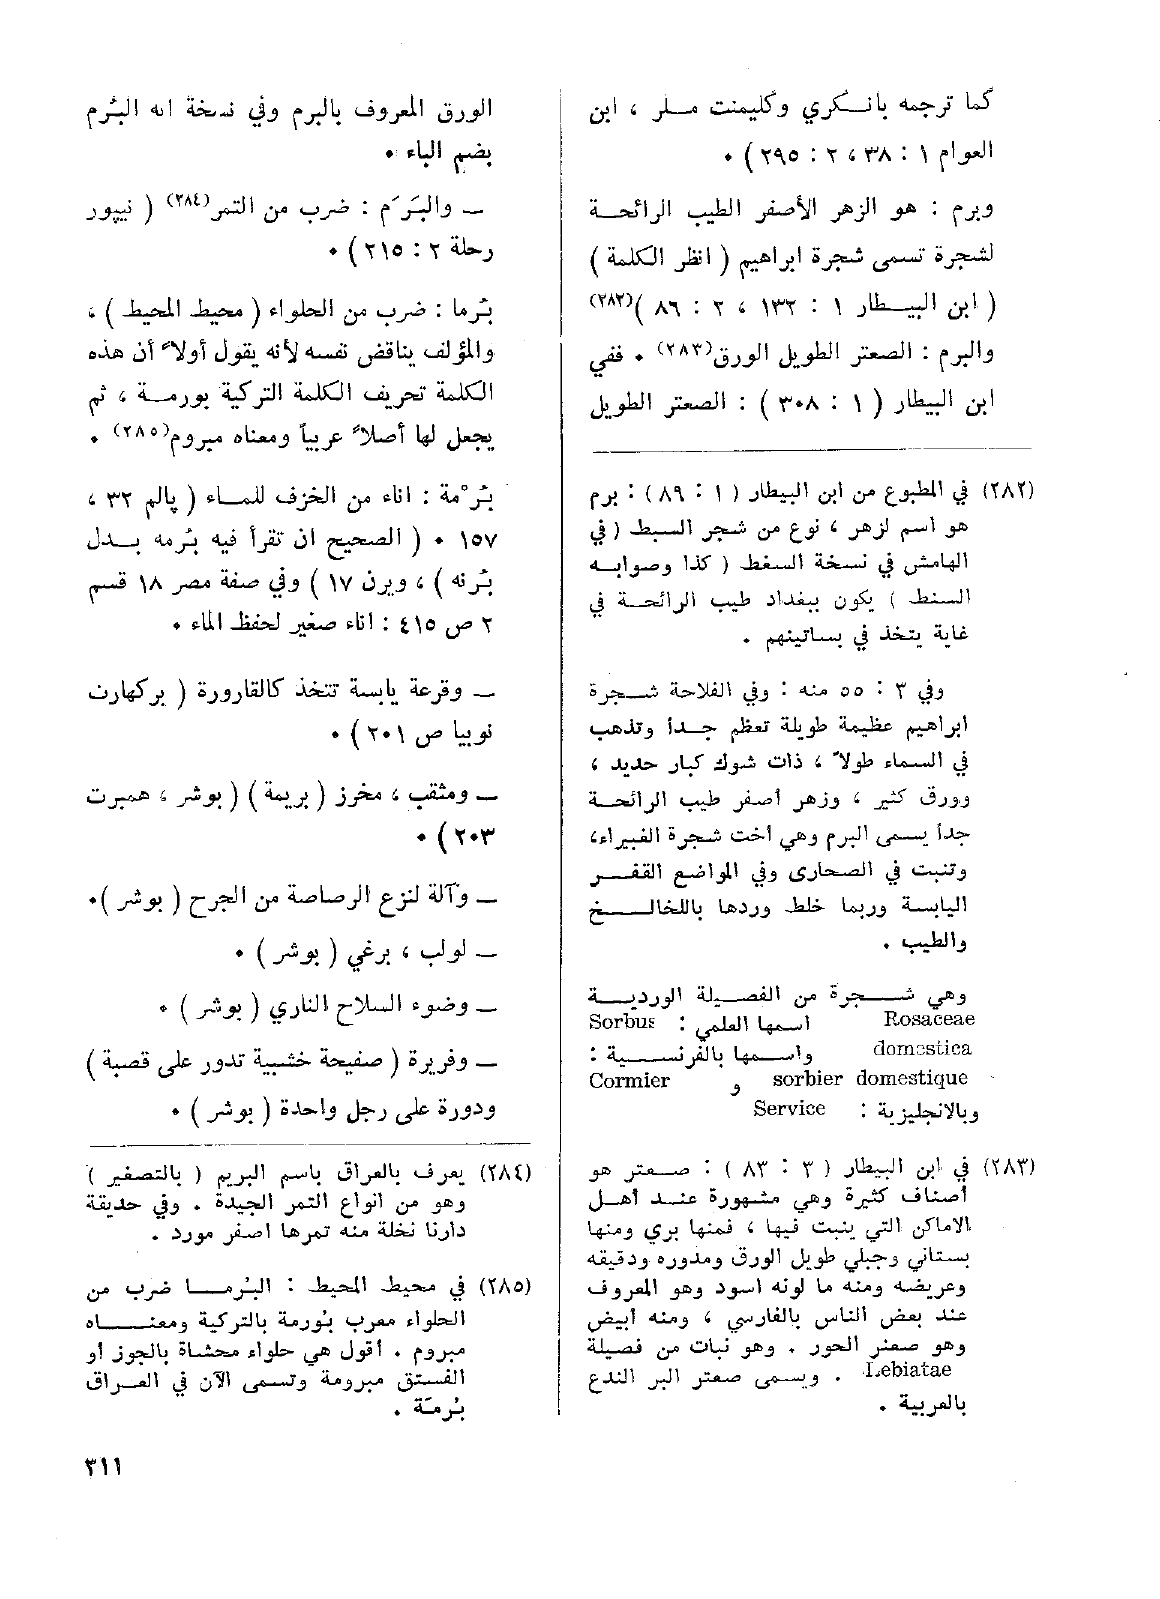 كما ترجمه بانكري وكليمنت ملر ، ابن
العوام ١ : ٣٨ ، ٢ : ٢٩٥ ) .
وبرم : هو الزهر الأصفر الطيب الرائحة
لشجرة تسمى شجرة ابراهيم ( انظر الكلمة )
( ابن البيطار ١ : ١٣٢ ، ٢ : ٨٦ )(٢٨٢)
والبرم : الصعتر الطويل الورق(٢٨٣) . ففي
ابن البيطار ( ١ : ٣٠٨ ) : الصعتر الطويل
(٢٨٢) في المطبوع من ابن البيطار ( ١ : ٨٩ ) : برم
هو اسم لزهر ، نوع من شجر السبط ( في
الهامش في نسخة السغط ( كذا وصوابه
السنط ) يكون ببغداد طيب الرائحة في
غاية يتخذ في بساتينهم .
وفي ٣ : ٥٥ منه : وفي الفلاحة شجرة
ابراهيم عظيمة طويلة تعظم جداً وتذهب
في السماء طولاً ، ذات شوك كبار حديد ،
وورق كثير ، وزهر أصفر طيب الرائحة
جداً يسمى البرم وهي أخت شجرة الغبيراء،
وتنبت في الصحارى وفي المواضع القفر
اليابسة وربما خلط وردها باللخالخ
والطيب .
وهي شجرة من الفصيلة الوردية
Rosaceae اسمها العلمي : Sorbus
domestica واسمها بالفرنسية :
sorbier domestique و Cormier
وبالانجليزية : Service
(٢٨٣) في ابن البيطار ( ٣ : ٨٣ ) : صعتر هو
أصناف كثيرة وهي مشهورة عند أهل
الاماكن التي ينبت فيها ، فمنها بري ومنها
بستاني وجبلي طويل الورق ومدوره ودقيقه
وعريضه ومنه ما لونه اسود وهو المعروف
عند بعض الناس بالفارسي ، ومنه ابيض
وهو صعتر الحور . وهو نبات من فصيلة
Lebiatae . ويسمى صعتر البر الندغ
بالعربية .
الورق المعروف بالبرم وفي نسخة انه البُرم
بضم الباء .
ــ والبَرَم : ضرب من التمر(٢٨٤) ( نيبور
رحلة ٢ : ٢١٥ ) .
بُرما : ضرب من الحلواء ( محيط المحيط ) ،
والمؤلف يناقض نفسه لأنه يقول أولاً أن هذه
الكلمة تحريف الكلمة التركية بورمة ، ثم
يجعل لها أصلاً عربياً ومعناه مبروم(٢٨٥) .
بُرْمة : اناء من الخزف للماء ( پالم ٣٢ ،
١٥٧ . ( الصحيح ان تقرأ فيه بُرمه بدل
بُرنه ) ، ويرن ١٧ ) وفي صفة مصر ١٨ قسم
٢ ص ٤١٥ : اناء صغير لحفظ الماء .
ــ وقرعة يابسة تتخذ كالقارورة ( بركهارت
نوبيا ص ٢٠١ ) .
ــ ومثقب ، مخرز ( بريمة ) ( بوشر ، همبرت
٢٠٣ ) .
ــ وآلة لنزع الرصاصة من الجرح ( بوشر ).
ــ لولب ، برغي ( بوشر ) .
ــ وضوء السلاح الناري ( بوشر ) .
ــ وفريرة ( صفيحة خشبية تدور على قصبة )
ودورة على رجل واحدة ( بوشر ) .
(٢٨٤) يعرف بالعراق باسم البريم ( بالتصغير )
وهو من انواع التمر الجيدة . وفي حديقة
دارنا نخلة منه تمرها اصفر مورد .
(٢٨٥) في محيط المحيط : البُرما ضرب من
الحلواء معرب بُورمة بالتركية ومعناه
مبروم . أقول هي حلواء محشاة بالجوز أو
الفستق مبرومة وتسمى الآن في العراق
بُرمَة .
٣١١